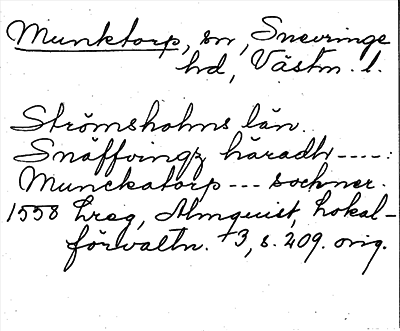 Munktorp, sn, Snevringe
hd, Västm. l.
Strömsholms län.
Snäffringz häradh ----:
Munckatorp --- sochner.
1558 Lreg, Almquist, Lokal-
förvaltn. 3, s. 209. orig.